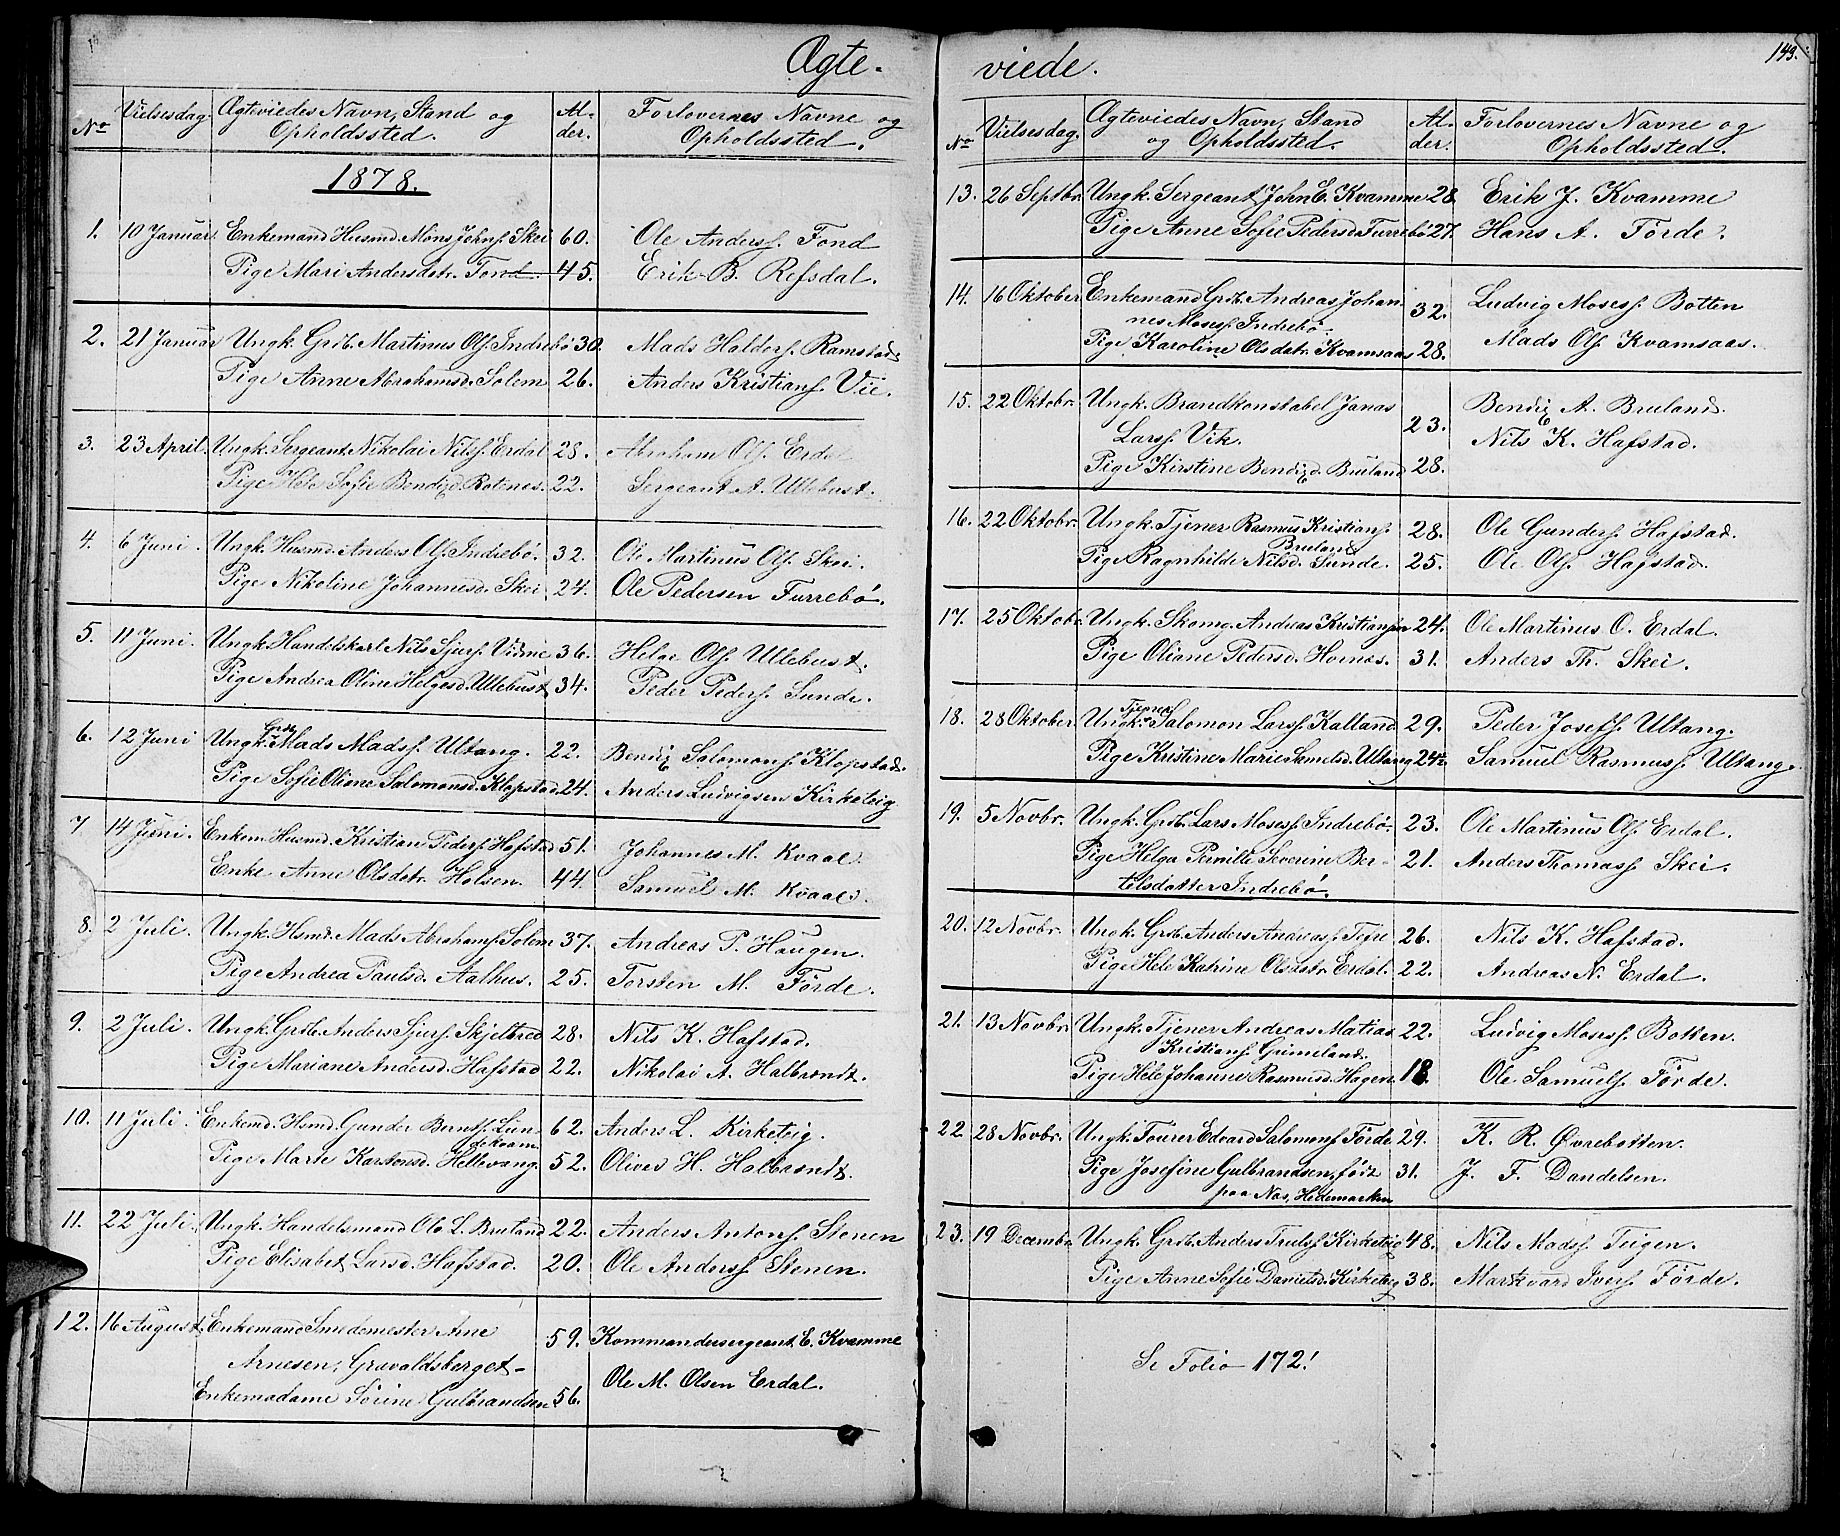 Ægte-
No Vielsesdag. Ægteviedes Navn, Stand og Opholdssted. Alder. Forlovernes Navne og Opholdssted.
1878.
1. 10 Januar Enkemand Husmd. Mons Johns. Skei 60. Ole Anderss. Fond
Pige Mari Andersdtr. Fond. 45. Erik B. Refsdal.
2. 21 Januar Ungk. Grdb. Martinus Ols. Indrebö 30. Mads Haldors. Ramstad.
Pige Anne Abrahamsd. Solem 26. Anders Kristians. Vie.
3. 23 April. Ungk. Sergeant Nikolai Nilss. Erdal 28. Abraham Ols. Erdal
Pige Hele Sofie Bendixd. Rotenes. 22. Sergeant A. Ullebust.
4. 6 Juni. Ungk. Husmd. Anders Ols. Indrebö. 32. Ole Martinus Ols. Skei.
Pige Nikoline Johannesd. Skei 24. Ole Pedersen Furrebö.
5. 11 Juni. Ungk. Handelskarl Nils Sjurs. Vidme 36. Helge Ols. Ullebust.
Pige Andrea Oline Helgesd. Ullebust 34. Peder Peders. Sunde.
6. 12 Juni Ungk. Grdb. Mads Madss. Ultang. 22. Bendix Salomons. Klopstad.
Pige Sofie Oliane Salomonsd. Klopstad 24. Anders Ludvigsen Kirketeig
7 14 Juni. Enkem. Husmd. Kristian Peders. Hafstad 51. Johannes M. Kvaal.
Enke Anne Olsdatr. Holsen. 44. Samuel M. Kvaal.
8. 2 Juli. Ungk. Hsmd. Mads Abrahams. Solem 37. Andreas P. Haugen.
Pige Andrea Paulsd. Aalhus. 25. Torsten M. Förde.
9. 2 Juli. Ungk. Grdb. Anders Sjurs. Skjeltred 28. Nils K. Hafstad.
Pige Mariane Andersd. Hafstad 22. Nikolai A. Halbrendt.
10. 11 Juli. Enkemd. Hsmd. Gunder Bernts. Lundekvam 62. Anders L. Kirketeig.
Pige Marte Karstensd. Hellevang. 52. Oliver H. Halbrendt.
11. 22 Juli. Ungk. Handelsmand Ole L. Bruland 22. Anders Antons. Stenen
Pige Elisabet Larsd. Hafstad. 20. Ole Anderss. Stenen.
12. 16 August. Enkemand Smedemester Arne
Arnesen, Gravaldsberget 59. Kommandersergeant E. Kvamme
Enkemadame Sörine Gulbrandsen 56. Ole M. Olsen Erdal.
viede. 149.
No Vielsesdag. Ægteviedes Navn, Stand og Opholdssted. Alder. Forlovernes Navne og Opholdssted.
13. 26 Septbr. Ungk. Sergeant John E. Kvamme 28 Erik J. Kvamme
Pige Anne Sofie Pedersd. Furrebö 27. Hans A. Förde.
14. 16 Oktober. Enkemand Grdb. Andreas Johan-
nes Moses. Indrebö 32. Ludvig Moses. Botten
Pige Karoline Olsdatr. Kvamsaas 28. Mads Ols. Kvamsaas.
15. 22 Oktobr. Ungk. Brandkonstabel Janas
Larss. Vik. 23. Bendix A. Bruland.
Pige Kirstine Bendixd. Bruland 28. Nils K. Hafstad.
16. 22 Oktobr. Ungk. Tjener Rasmus Kristians. Bruland 28. Ole Gunders. Hafstad.
Pige Ragnhilde Nilsd. Sunde. 25. Ole Ols. Hafstad.
17. 25 Oktobr. Ungk. Skomg. Andreas Kristiansen 24. Ole Martinus O. Erdal.
Pige Oliane Pedersd. Hornes. 31. Anders Th. Skei.
18. 28 Oktober. Ungk. Tjener Salomon Larss. Kalland 29. Peder Josefs. Ultang.
Pige Kristine Marie Samuelsd. Ultang 24 Samuel Rasmuss. Ultang.
19. 5 Novbr. Ungk. Grdb. Lars Moses. Indrebö. 23. Ole Martinus Ols. Erdal.
Pige Helga Pernille Severine Ber-
telsdatter Indrebö. 21. Anders Thomass. Skei.
20. 12 Novbr. Ungk. Grdb. Anders Andreass. Tefre 26. Nils K. Hafstad.
Pige Hele Katrine Olsdatr. Erdal. 22. Andreas N. Erdal.
21. 13 Novbr. Ungk. Tjener Andreas Matias
Kristians. Grimeland. 22. Ludvig Moses. Botten.
Pige Hele Johanne Rasmusd. Hagen. 18. Ole Samuels. Förde.
22. 28 Novbr. Ungk. Fourer Edvard Salomons. Förde 29. K. R. Øvrebotten.
Pige Josefine Gulbrandsen, född
paa Nas, Hedemarken 31. J. F. Dandelsen.
23. 19 Decembr. Ungk. Grdb. Anders Trulss. Kirketeig 48. Nils Madss. Teigen.
Pige Anne Sofie Danielsd. Kirketeig 38. Markvard Ivers. Förde.
Se Folio 172!